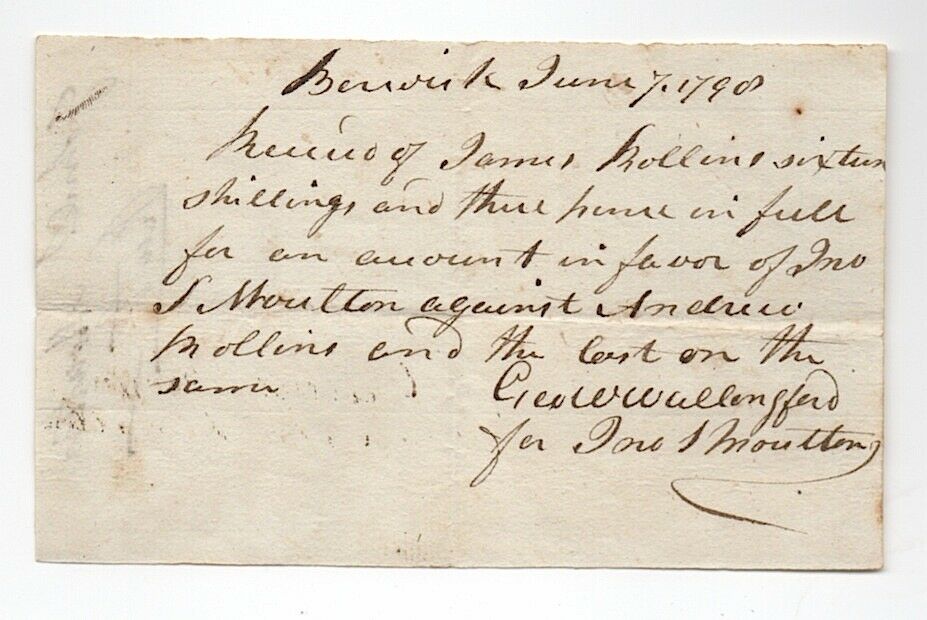 Berwick June 7, 1798
Received of James Rollins sixteen
shillings and three pence in full
for an account in favor of Jno
S Moulton against Andrew
Rollins and the cost on the
same
Geo W Wallingford
for Jno S Moulton